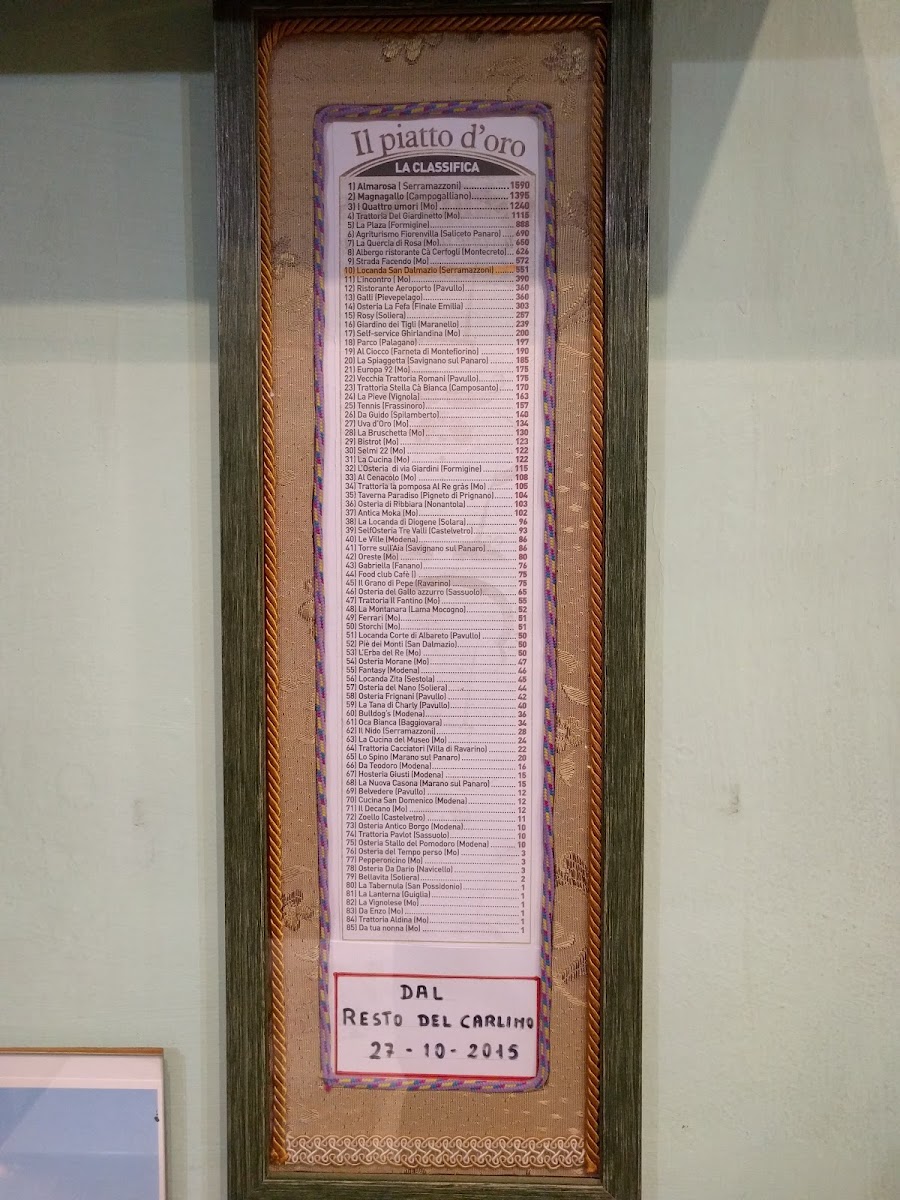 Il piatto d'oro
LA CLASSIFICA
1) Almarosa ( Serramazzoni) ..................1590
2) Magnagallo (Campogalliano)...............1395
3) I Quattro umori (Mo)............................1240
4) Trattoria Del Giardinetto (Mo)......................1115
5) La Plaza (Formigine)....................................888
6) Agriturismo Fiorenvilla (Saliceto Panaro) .....690
7) La Quercia di Rosa (Mo)...............................650
8) Albergo ristorante Cà Cerfogli (Montecreto)...626
9) Strada Facendo (Mo)...................................572
10) Locanda San Dalmazio (Serramazzoni) .......551
11) L'incontro ( Mo)..........................................390
12) Ristorante Aeroporto (Pavullo)....................360
13) Galli (Pievepelago).....................................360
14) Osteria La Fefa (Finale Emilia) ....................303
15) Rosy (Soliera).............................................257
16) Giardino dei Tigli (Maranello)......................239
17) Self-service Ghirlandina (Mo) .....................200
18) Parco (Palagano)........................................197
19) Al Ciocco (Farneta di Montefiorino) .............190
20) La Spiaggetta (Savignano sul Panaro)..........185
21) Europa 92 (Mo)...........................................175
22) Vecchia Trattoria Romani (Pavullo)...............175
23) Trattoria Stella Cà Bianca (Camposanto)......170
24) La Pieve (Vignola).......................................163
25) Tennis (Frassinoro).....................................157
26) Da Guido (Spilamberto)...............................140
27) Uva d'Oro (Mo)............................................134
28) La Bruschetta (Mo)......................................130
29) Bistrot (Mo).................................................123
30) Selmi 22 (Mo) .............................................122
31) La Cucina (Mo) ...........................................122
32) L'Osteria di via Giardini (Formigine)............115
33) Al Cenacolo (Mo) ........................................108
34) Trattoria la pomposa Al Re gràs (Mo)..........105
35) Taverna Paradiso (Pigneto di Prignano)........104
36) Osteria di Ribbiara (Nonantola)....................103
37) Antica Moka (Mo)........................................102
38) La Locanda di Diogene (Solara)....................96
39) SelfOsteria Tre Valli (Castelvetro).................93
40) Le Ville (Modena).........................................86
41) Torre sull'Aia (Savignano sul Panaro)...........86
42) Oreste (Mo).................................................80
43) Gabriella (Fanano).......................................76
44) Food club Cafè ()........................................75
45) Il Grano di Pepe (Ravarino)..........................75
46) Osteria del Gallo azzurro (Sassuolo).............65
47) Trattoria Il Fantino (Mo)...............................55
48) La Montanara (Lama Mocogno)....................52
49) Ferrari (Mo).................................................51
50) Storchi (Mo).................................................51
51) Locanda Corte di Albareto (Pavullo) .............50
52) Piè dei Monti (San Dalmazio).......................50
53) L'Erba del Re (Mo).......................................50
54) Osteria Morane (Mo)....................................47
55) Fantasy (Modena)........................................46
56) Locanda Zita (Sestola).................................45
57) Osteria del Nano (Soliera)............................44
58) Osteria Frignani (Pavullo).............................42
59) La Tana di Charly (Pavullo)...........................40
60) Bulldog's (Modena)......................................36
61) Oca Bianca (Baggiovara)..............................34
62) Il Nido (Serramazzoni).................................28
63) La Cucina del Museo (Mo)............................24
64) Trattoria Cacciatori (Villa di Ravarino)..........22
65) Lo Spino (Marano sul Panaro).......................20
66) Da Teodoro (Modena)...................................16
67) Hosteria Giusti (Modena).............................15
68) La Nuova Casona (Marano sul Panaro).........15
69) Belvedere (Pavullo)......................................12
70) Cucina San Domenico (Modena)...................12
71) Il Decano (Mo).............................................12
72) Zoello (Castelvetro).....................................11
73) Osteria Antico Borgo (Modena).....................10
74) Trattoria Pavlot (Sassuolo)...........................10
75) Osteria Stallo del Pomodoro (Modena).........10
76) Osteria del Tempo perso (Mo).......................3
77) Pepperoncino (Mo).......................................3
78) Osteria Da Dario (Navicello)..........................3
79) Bellavita (Soliera).........................................2
80) La Tabernula (San Possidonio)......................1
81) La Lanterna (Guiglia)....................................1
82) La Vignolese (Mo)........................................1
83) Da Enzo (Mo)...............................................1
84) Trattoria Aldina (Mo)....................................1
85) Da tua nonna (Mo).......................................1
DAL
RESTO DEL CARLINO
27-10-2015